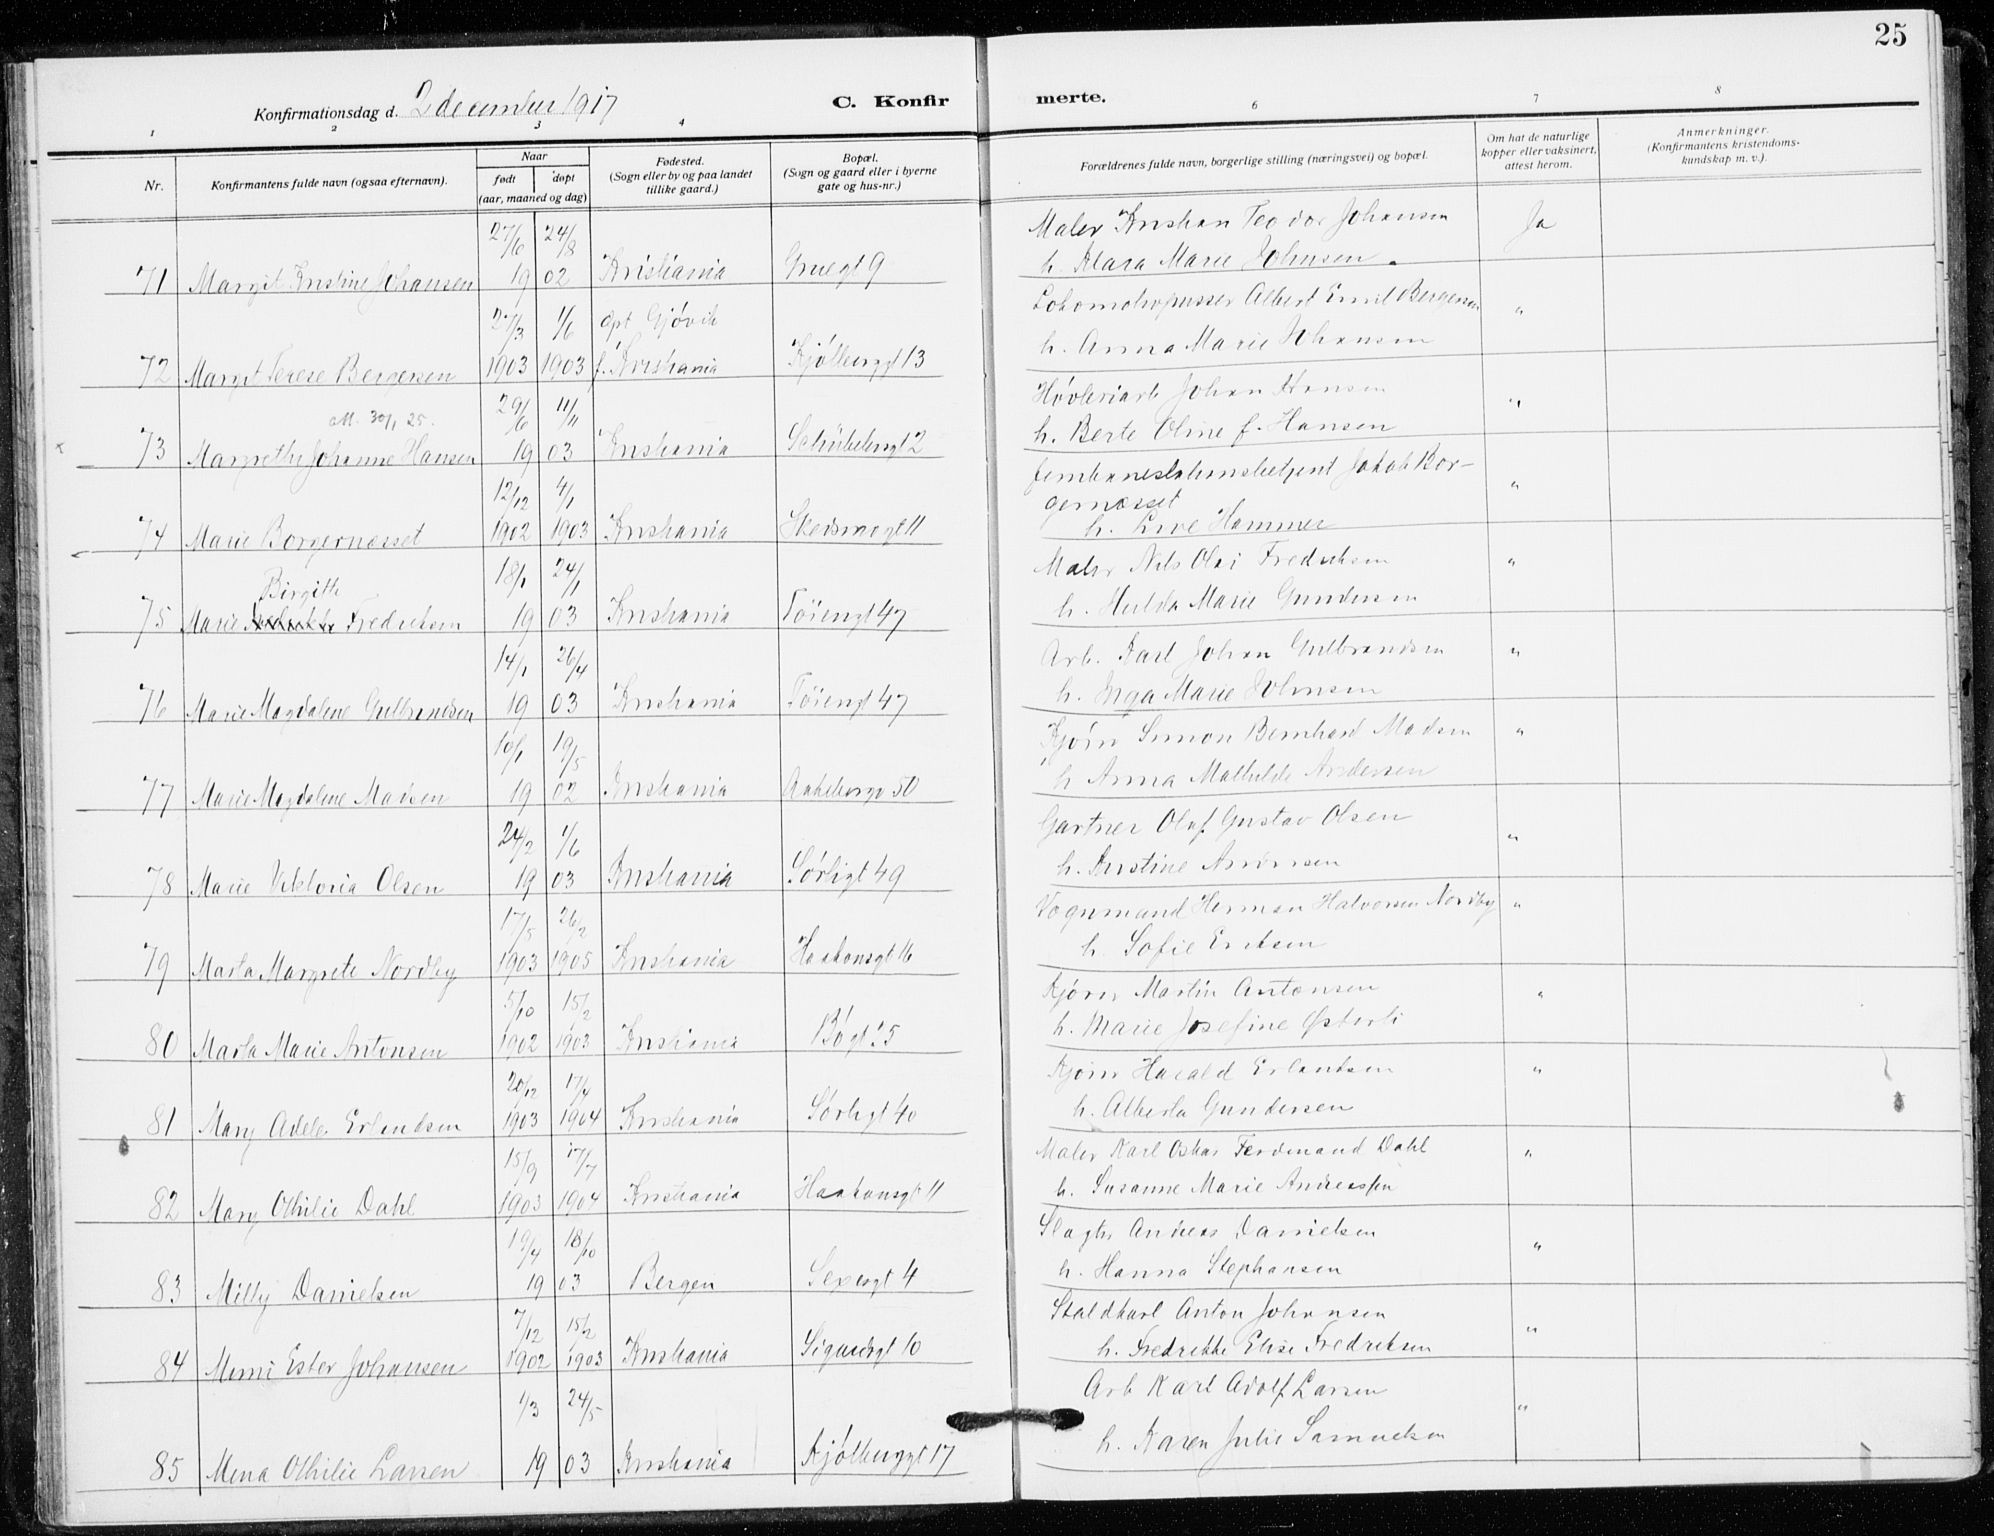 25
Konfirmationsdag d. 2 december 1917
C. Konfirmerte.
1 2 3 4 6 7 8
Nr.
Konfirmantens fulde navn (ogsaa efternavn).
Naar
født døpt
(aar, maaned og dag)
Fødested.
(Sogn eller by og paa landet
tillike gaard.)
Bopæl.
(Sogn og gaard eller i byerne
gate og hus-nr.)
Forældrenes fulde navn, borgerlige stilling (næringsvei) og bopæl.
Om hat de naturlige
kopper eller vaksinert,
attest herom.
Anmerkninger.
(Konfirmantens kristendoms-
kundskap m. v.).
27/6 24/8 Maler Kristian Teodor Johansen Ja
71 Margit Kristine Johansen 19 02 Kristiania Gruegt 9 h. Klara Marie Johnsen.
27/3 1/6 døpt Gjøvik Lokomotivpusser Albert Emil Bergersen "
72 Margit Terese Bergersen 1903 1903 f. Kristiania Kjølberggt 13 h. Anna Marie Johansen
M. 30/1 25. 29/6 11/11 Høvleriarb Johan Hansen "
73 Margrethe Johanne Hansen 19 03 Kristiania Schübelersgt 2 h. Berte Oline f. Hansen
12/12 4/1 Jernbanestationsbetjent Jakob Bor-
gernæsset "
74 Marie Borgernæsset 1902 1903 Kristiania Skedsmogt 11 h. Live Hammer
Birgitte 18/1 24/1 Maler Nils Olai Fredriksen "
75 Marie Fredriksen 19 03 Kristiania Tøiengt 47 h. Hulda Marie Gundersen
14/1 26/4 Arb. Karl Johan Gulbrandsen "
76 Marie Magdalene Gulbrandsen 19 03 Kristiania Tøiengt 47 h. Inga Marie Johnsen
10/1 19/5 Kjører Simon Bernhard Madsen "
77 Marie Magdalene Madsen 19 02 Kristiania Aakebergv 50 h. Anna Mathilde Andersen
24/2 1/6 Gartner Olaf Gustav Olsen "
78 Marie Viktoria Olsen 19 03 Kristiania Sørligt 49 h. Kristine
17/5 26/2 Vognmand Herman Halvorsen Nordby "
79 Marta Margrete Nordby 1903 1905 Kristiania Haakonsgt 16 h. Sofie Eriksen
5/10 15/2 Kjører Martin Antonsen "
80 Marta Marie Antonsen 1902 1903 Kristiania Bøgt 15 h. Marie Josefine Østerli
20/12 17/4 Kjører Harald Erlandsen "
81 Mary Adele Erlandsen 1903 1904 Kristiania Sørligt 40 h. Alberta Gundersen
15/9 17/7 Maler Karl Oskar Ferdinand Dahl "
82 Mary Othilie Dahl 1903 1904 Kristiania Haakonsgt 11 h. Susanne Marie Andreassen
19/4 18/10 Slagter Andreas Danielsen "
83 Milly Danielsen 19 03 Bergen Sexesgt 4 h. Hanna Stephansen
7/12 15/2 Staldkarl Anton Johansen "
84 Mimi Ester Johansen 1902 1903 Kristiania Sigurdsgt 10 h. Fredrikke Elise Fredriksen
1/3 24/5 Arb Karl Adolf Larsen "
85 Mina Othilie Larsen 19 03 Kristiania Kjølberggt 17 h. Karen Julie Samuelsen